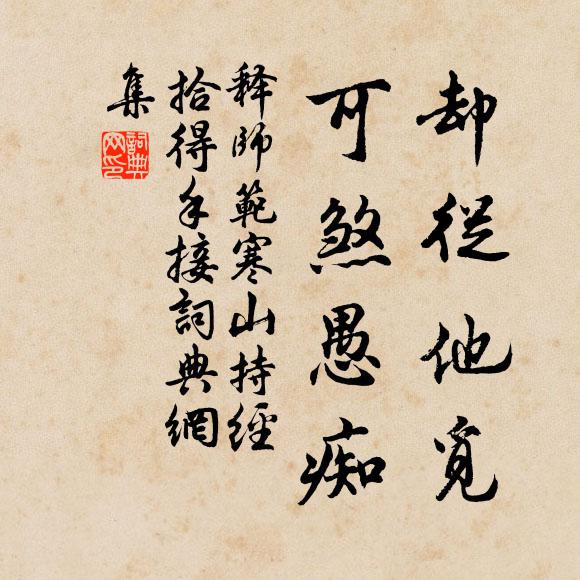 却從他覓
可煞愚痴
释師範寒山持經
拾得手接詞典網
集
詞典网印